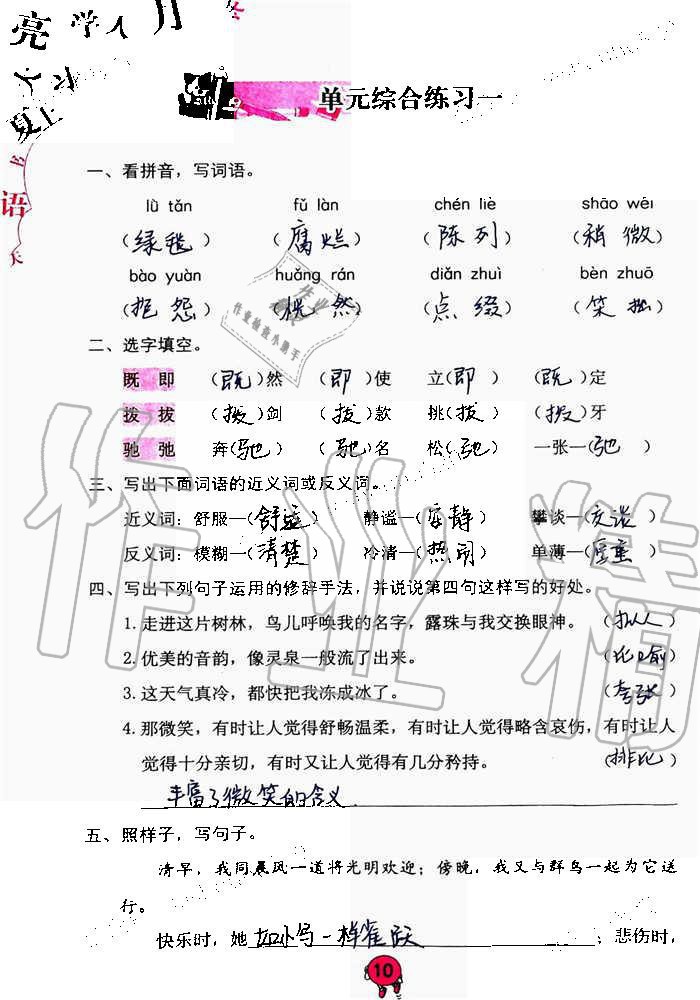 亮 学人
单元综合练习一
一、看拼音，写词语。
lǜ tǎn fǔ làn chén liè shāo wēi
（绿毯）（腐烂）（陈列）（稍微）
bào yuàn huǎng rán diǎn zhuì bèn zhuō
（抱怨）（恍然）（点缀）（笨拙）
二、选字填空。
既 即 （既）然 （即）使 立（即） （既）定
拨 拔 （拔）剑 （拨）款 挑（拨） （拔）牙
驰 弛 奔（驰） （驰）名 松（弛） 一张一（弛）
三、写出下面词语的近义词或反义词。
近义词：舒服—（舒适） 静谧—（安静） 攀谈—（交谈）
反义词：模糊—（清楚） 冷清—（热闹） 单薄—（厚重）
四、写出下列句子运用的修辞手法，并说说第四句这样写的好处。
1. 走进这片树林，鸟儿呼唤我的名字，露珠与我交换眼神。 （拟人）
2. 优美的音韵，像灵泉一般流了出来。 （比喻）
3. 这天气真冷，都快把我冻成冰了。 （夸张）
4. 那微笑，有时让人觉得舒畅温柔，有时让人觉得略含哀伤，有时让人
觉得十分亲切，有时又让人觉得有几分矜持。 （排比）
丰富了微笑的含义
五、照样子，写句子。
清早，我同晨风一道将光明欢迎；傍晚，我又与群鸟一起为它送
行。
快乐时，她如小鸟一样雀跃；悲伤时，
10